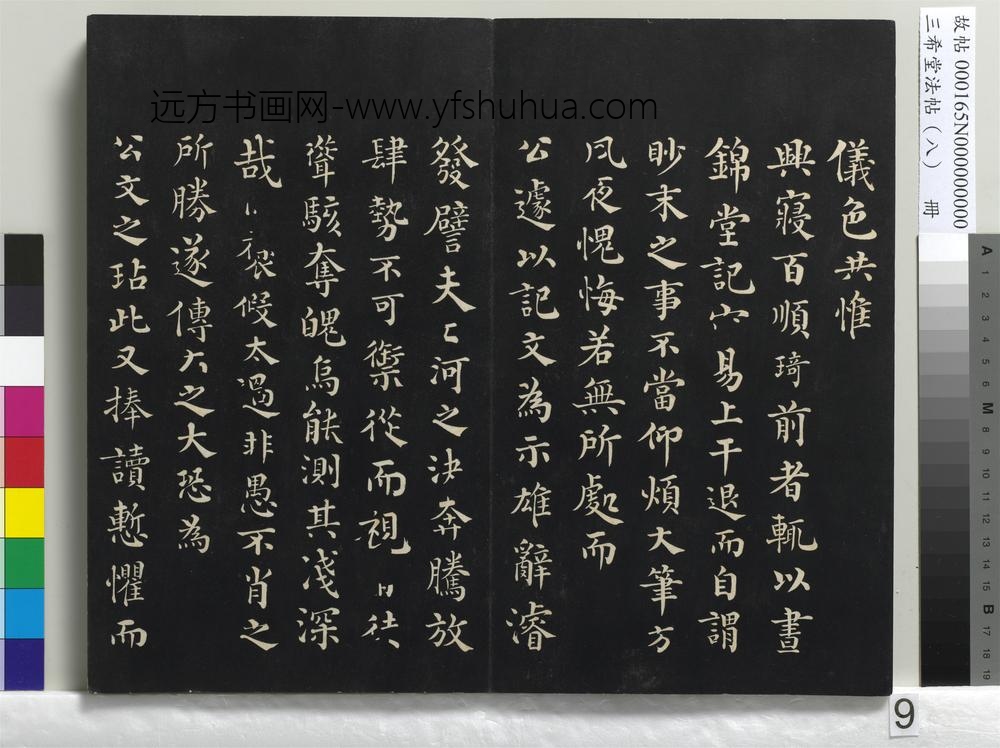 远方书画网-www.yfshuhua.com
儀色共惟
興寢百順琦前者輒以晝
錦堂記易上干退而自謂
眇末之事不當仰煩大筆方
夙夜愧悔若無所處而
公遽以記文為示雄辭濬
發譬夫河之決奔騰放
肆勢不可禦從而視徒
聳駭奪魄烏能測其淺深
哉假太過非愚不肖之
所勝遂傳之大恐為
公文之玷此又捧讀慙懼而
故帖 000165N000000000
三希堂法帖（八） 冊
A 1 2 3 4 5 6 M 8 9 10 11 12 13 14 15 B 17 18 19
9